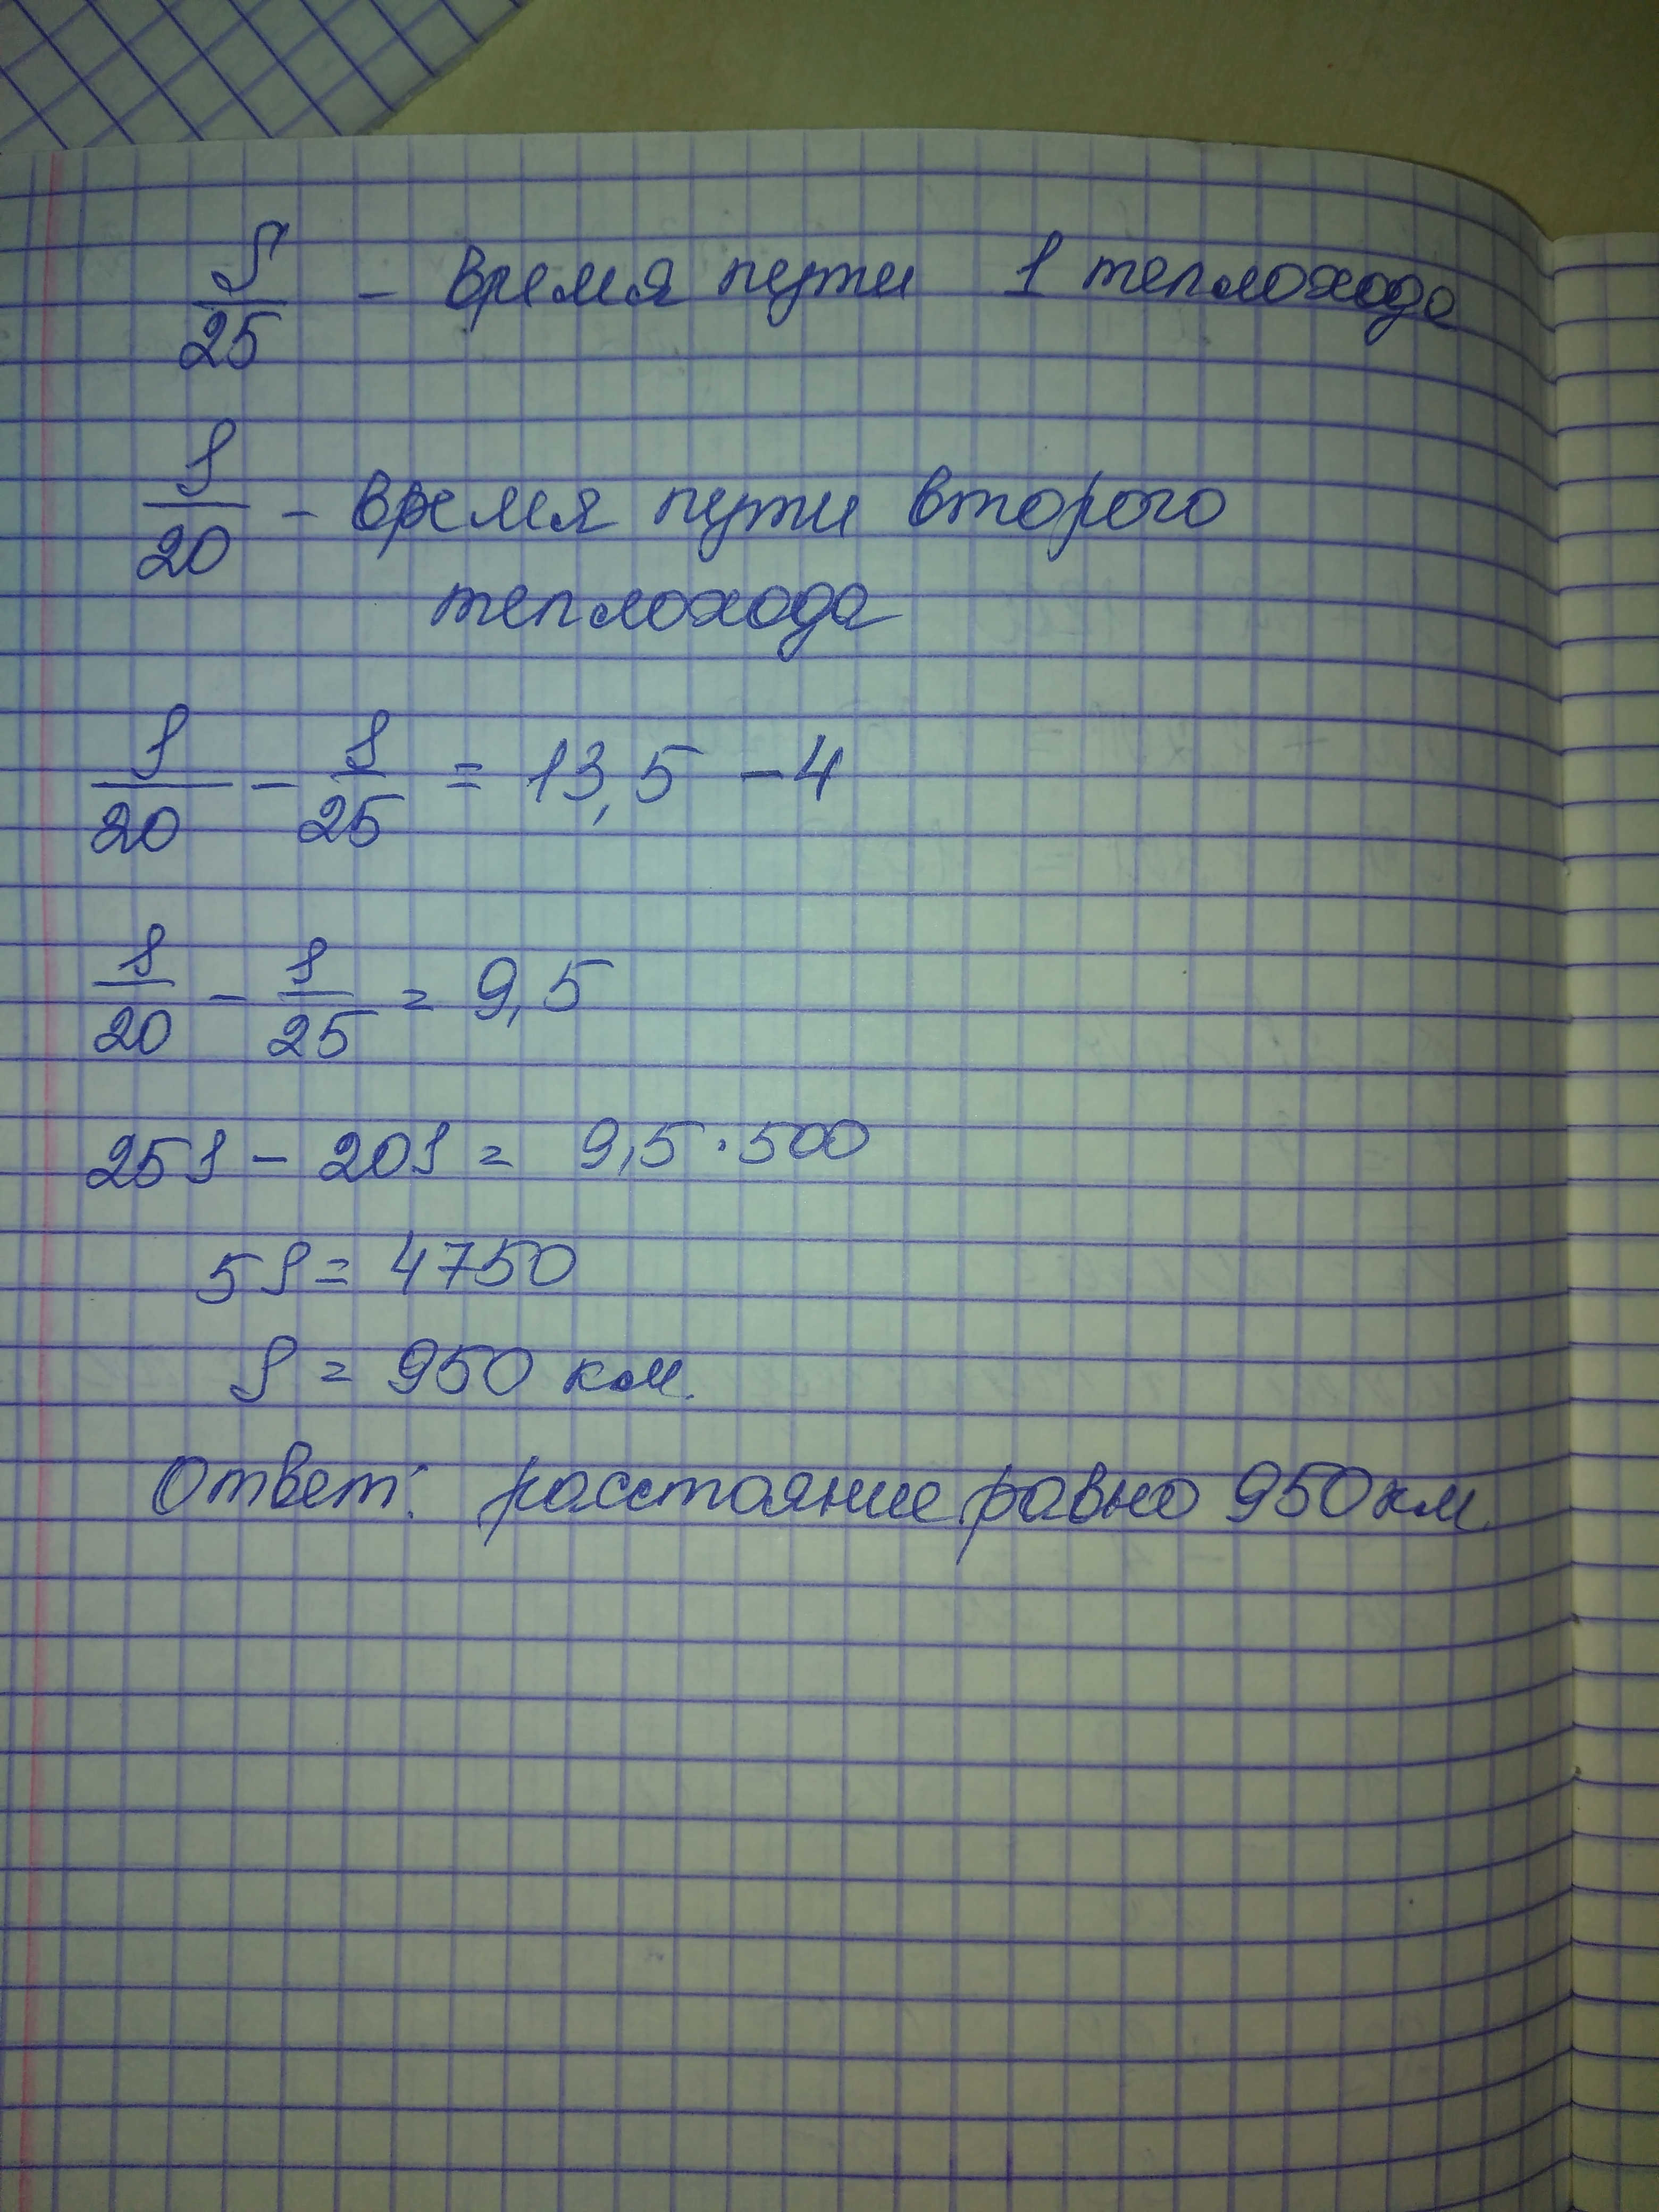 S/25 - время пути 1 теплохода
S/20 - время пути второго
теплохода
S/20 - S/25 = 13,5 - 4
S/20 - S/25 = 9,5
25S - 20S = 9,5 · 500
5S = 4750
S = 950 км.
Ответ: расстояние равно 950 км